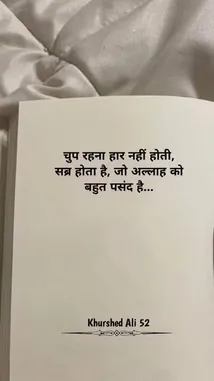 चुप रहना हार नहीं होती,
सब्र होता है, जो अल्लाह को
बहुत पसंद है...
Khurshed Ali 52